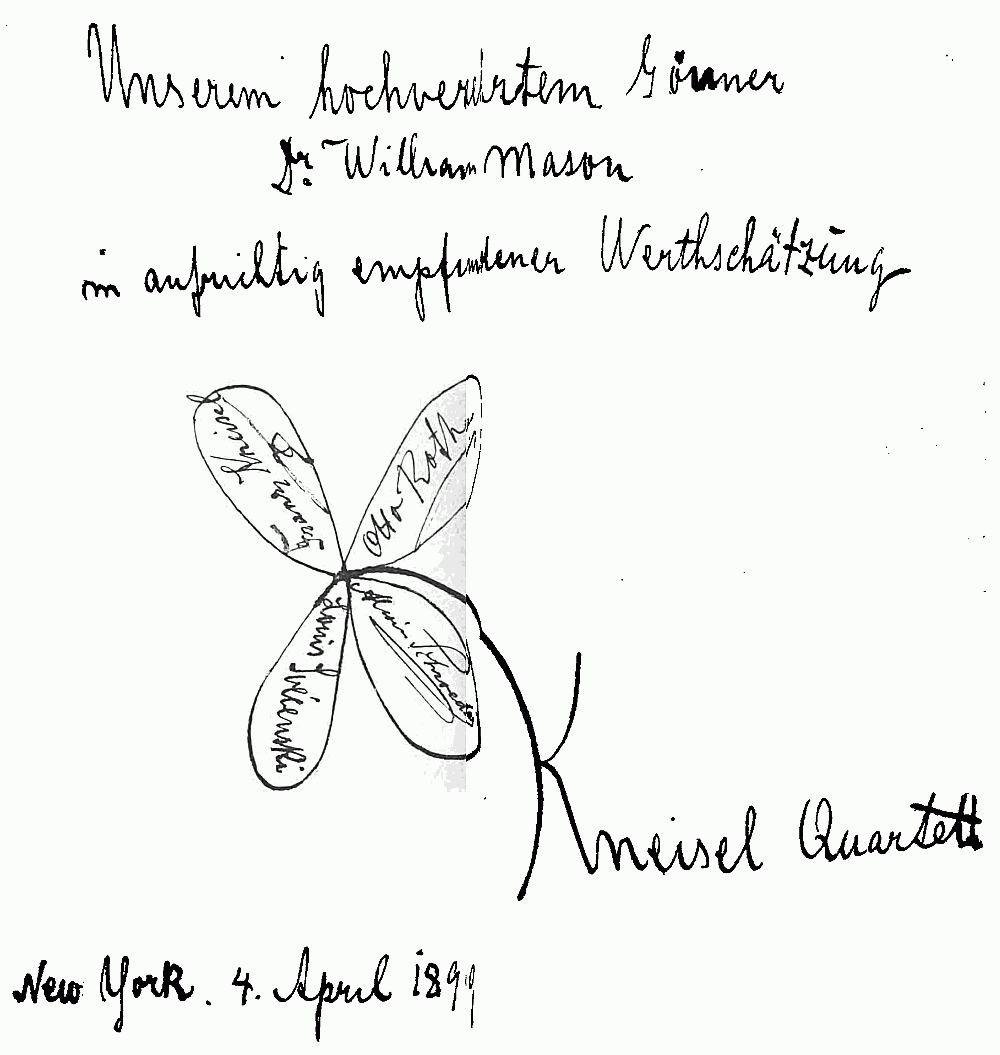 Unserem hochverehrtem Gönner
Dr. William Mason
in aufrichtig empfundener Werthschätzung
Franz Kneisel
Otto Roth
Louis Svećenski
Alwin Schroeder
Kneisel Quartett
New York. 4. April 1899